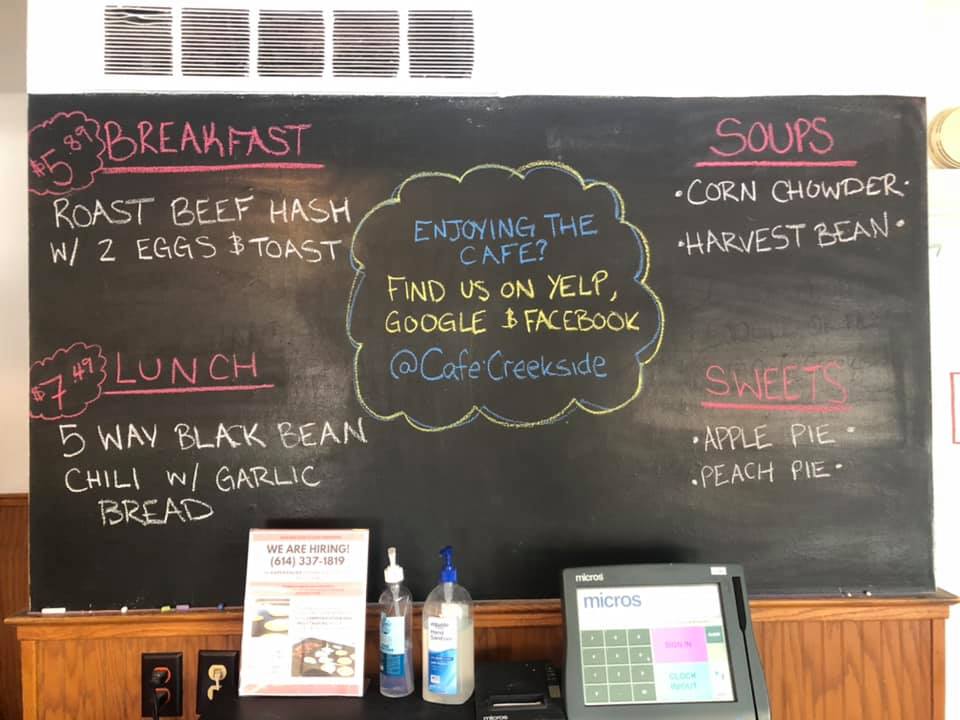 $5.89 BREAKFAST
ROAST BEEF HASH
W/ 2 EGGS & TOAST
$7.49 LUNCH
5 WAY BLACK BEAN
CHILI W/ GARLIC
BREAD
ENJOYING THE
CAFE?
FIND US ON YELP,
GOOGLE & FACEBOOK
@Cafe.Creekside
SOUPS
•CORN CHOWDER•
•HARVEST BEAN•
SWEETS
•APPLE PIE•
•PEACH PIE•
WE ARE HIRING!
(614) 337-1819
Hand
Sanitizer
micros
micros
SIGN IN
CLOCK
IN/OUT
micros